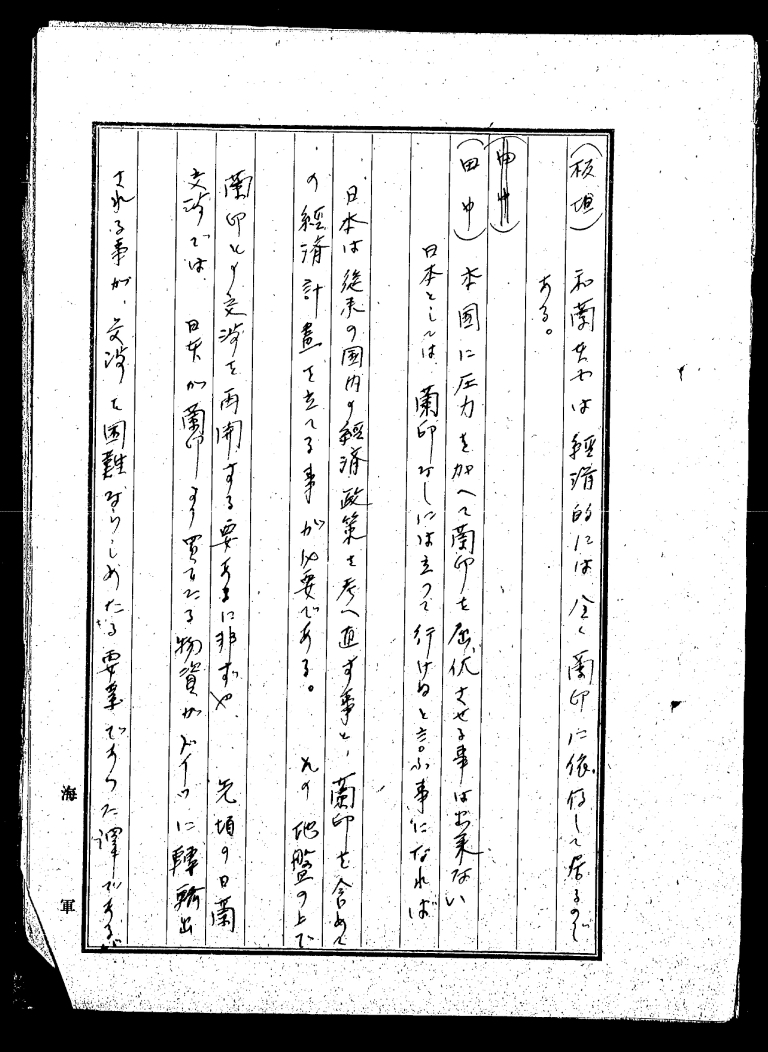 (板垣) 和蘭本也は経済的には全く蘭印に依存して居るので
ある。
(田中)
(田中) 本国に圧力を加へて蘭印を屈伏させる事は出来ない
日本としては、蘭印なしには立つて行けぬと言ふ事になれば
日本は従来の国内の経済政策を考へ直す事と、蘭印を含めて
の経済計畫を立てる事が必要である。 其の地盤の上で
蘭印との交渉を再開する要あるに非ずや 先頃の日蘭
交渉では、日本が蘭印より買ひたる物資がドイツに轉輸出
される事が、交渉を困難ならしめたる要素であつた譯であるが
海軍